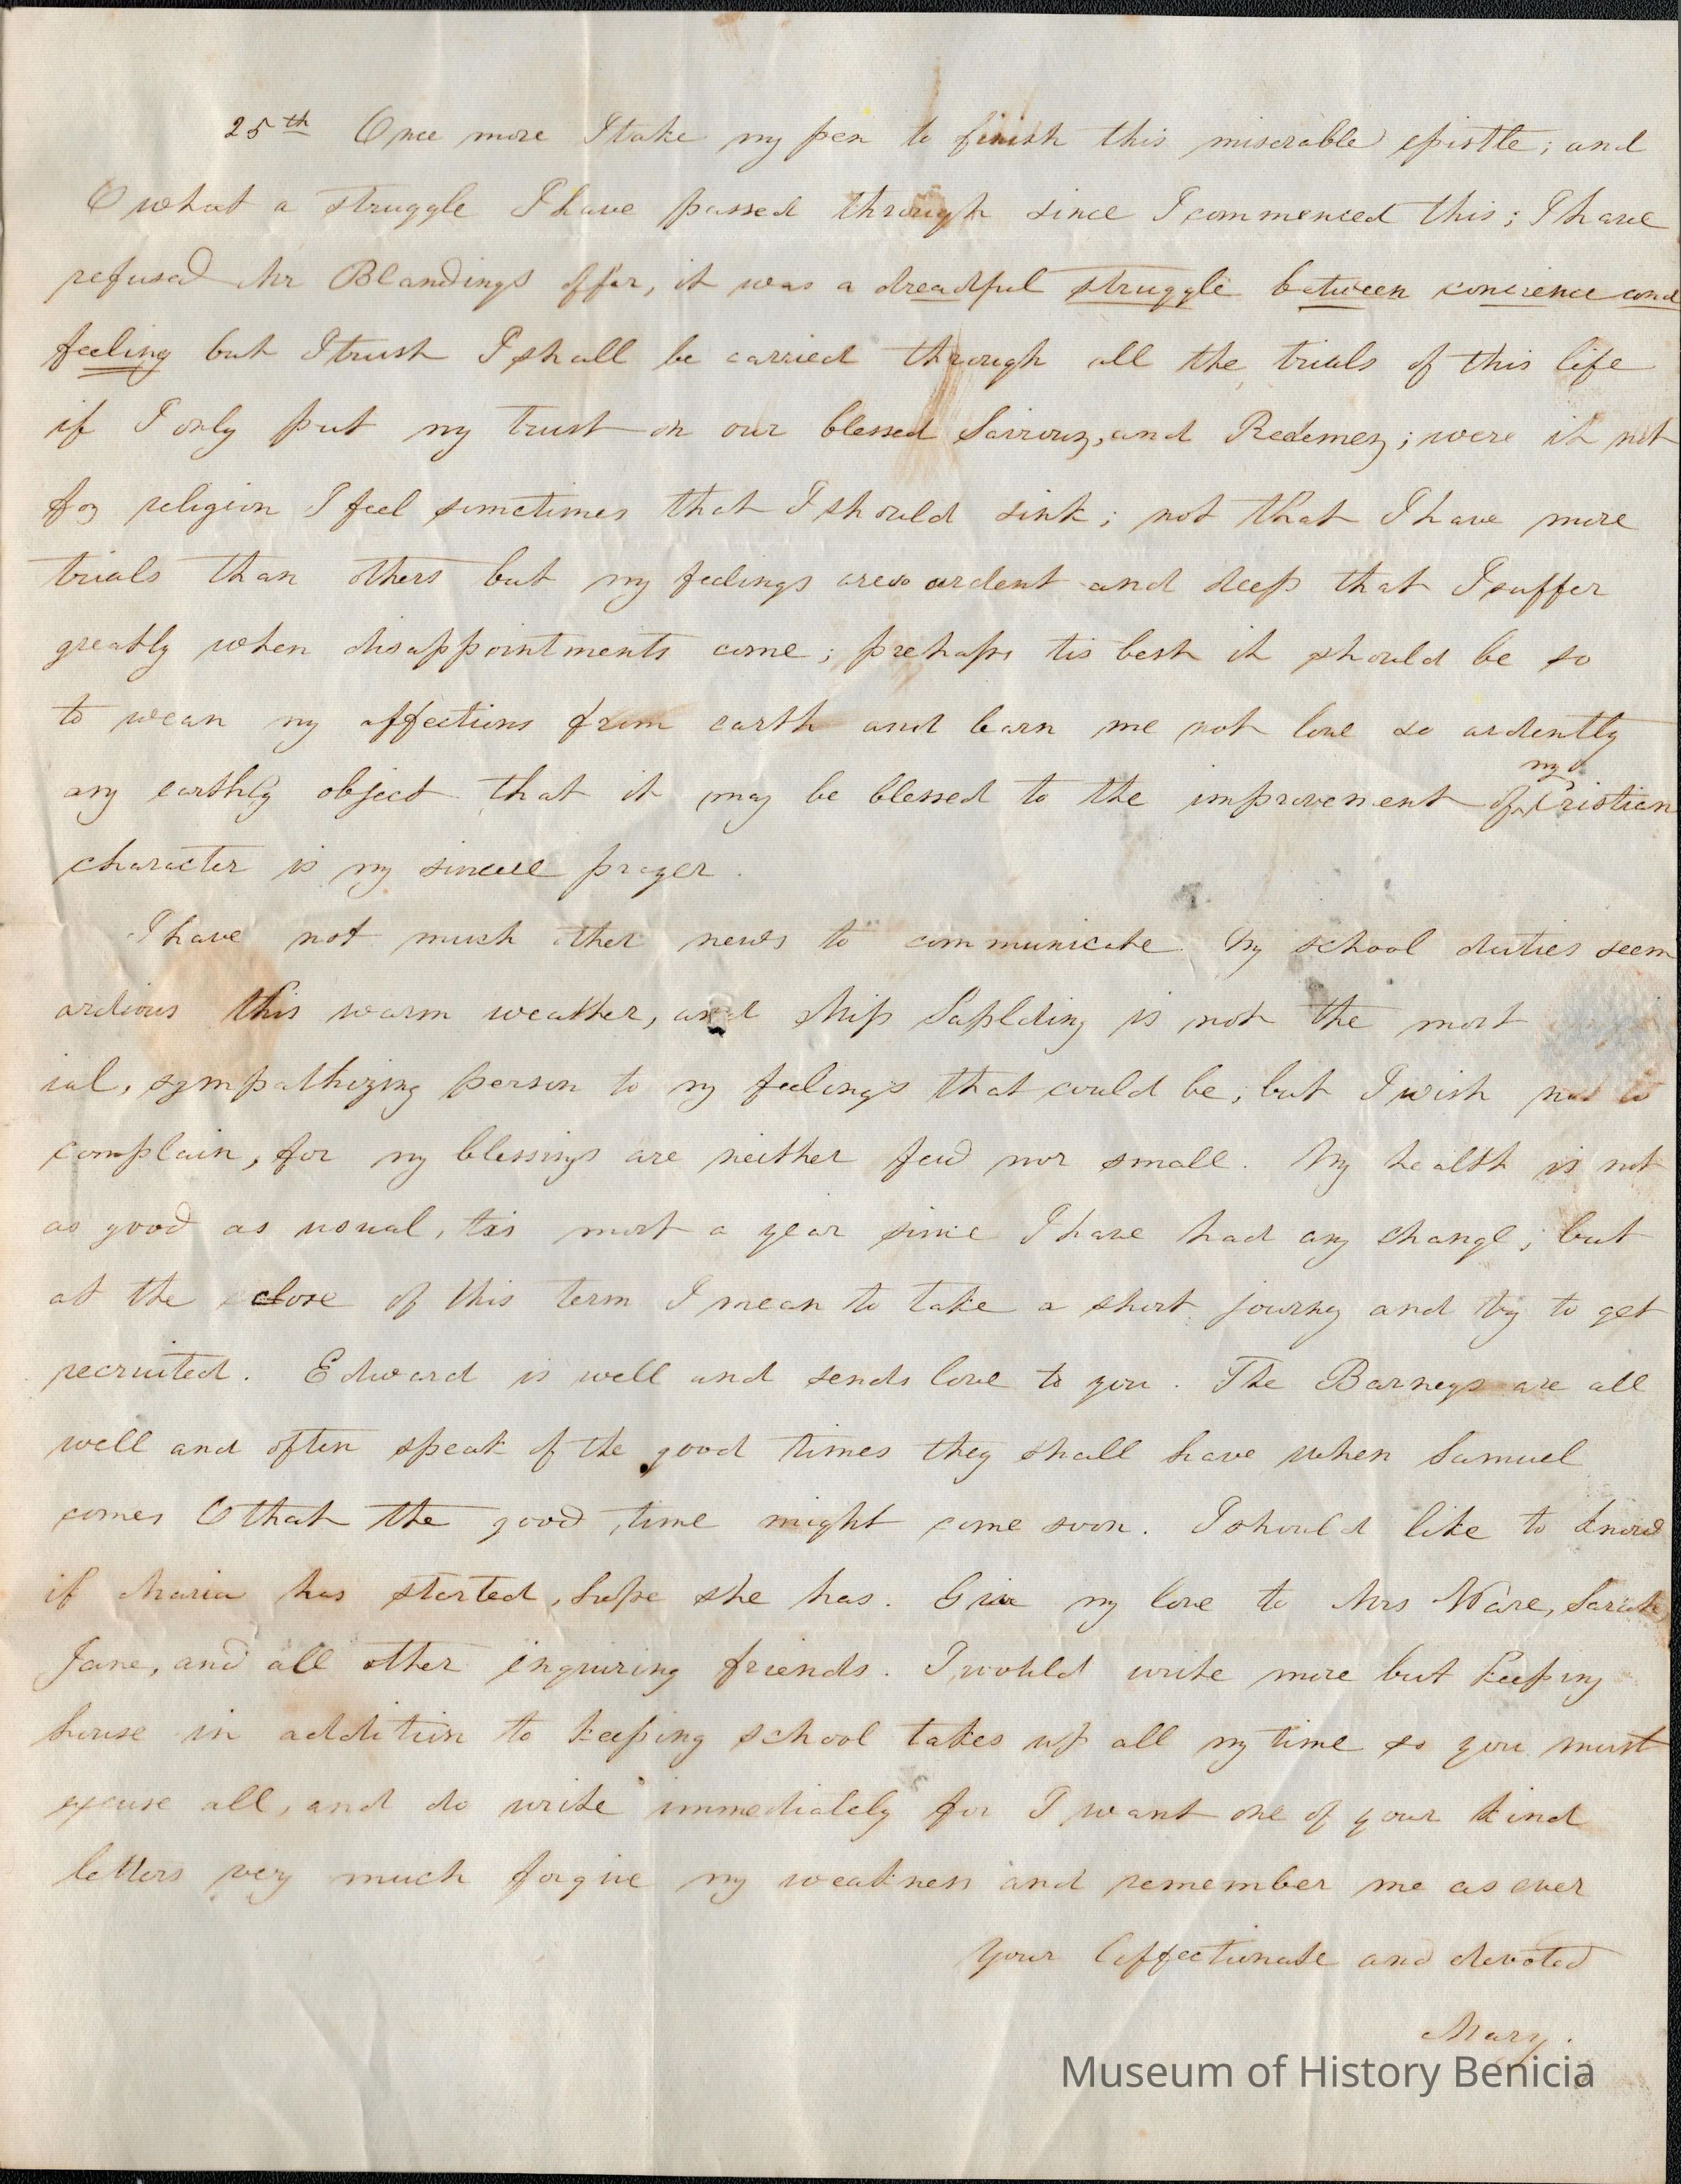 25th Once more I take my pen to finish this miserable epistle; and
O what a struggle I have passed through since I commenced this; I have
refused Mr Blandings offer, it was a dreadful struggle between concience and
feeling but I trust I shall be carried through all the trials of this life
if I only put my trust on our blessed Saviour, and Redemer; were it not
for religion I feel sometimes that I should sink; not that I have more
trials than others but my feelings are so ardent and deep that I suffer
greatly when disappointments come; prehaps tis best it should be so
to wean my affections from earth and learn me not love so ardently
any earthly object that it may be blessed to the improvement of my Cristian
character is my sincere prayer.
I have not much other news to communicate. My school duties seem
ardious this warm weather, and Miss Saplding is not the most
ial, sympathizing person to my feelings that could be; but I wish not to
complain, for my blessings are neither few nor small. My health is not
as good as usual, tis most a year since I have had any change; but
at the close of this term I mean to take a short journey and try to get
recruited. Edward is well and sends love to you. The Barneys are all
well and often speak of the good times they shall have when Samuel
comes O that the good time might come soon. I should like to know
if Maria has started, hope she has. Give my love to Mrs Ware, Sarah
Jane, and all other inquiring friends. I would write more but keeping
house in addition to keeping school takes up all my time so you must
excuse all, and do write immediately for I want one of your kind
letters very much forgive my weakness and remember me as ever
Your Affectionate and devoted
Mary.
Museum of History Benicia